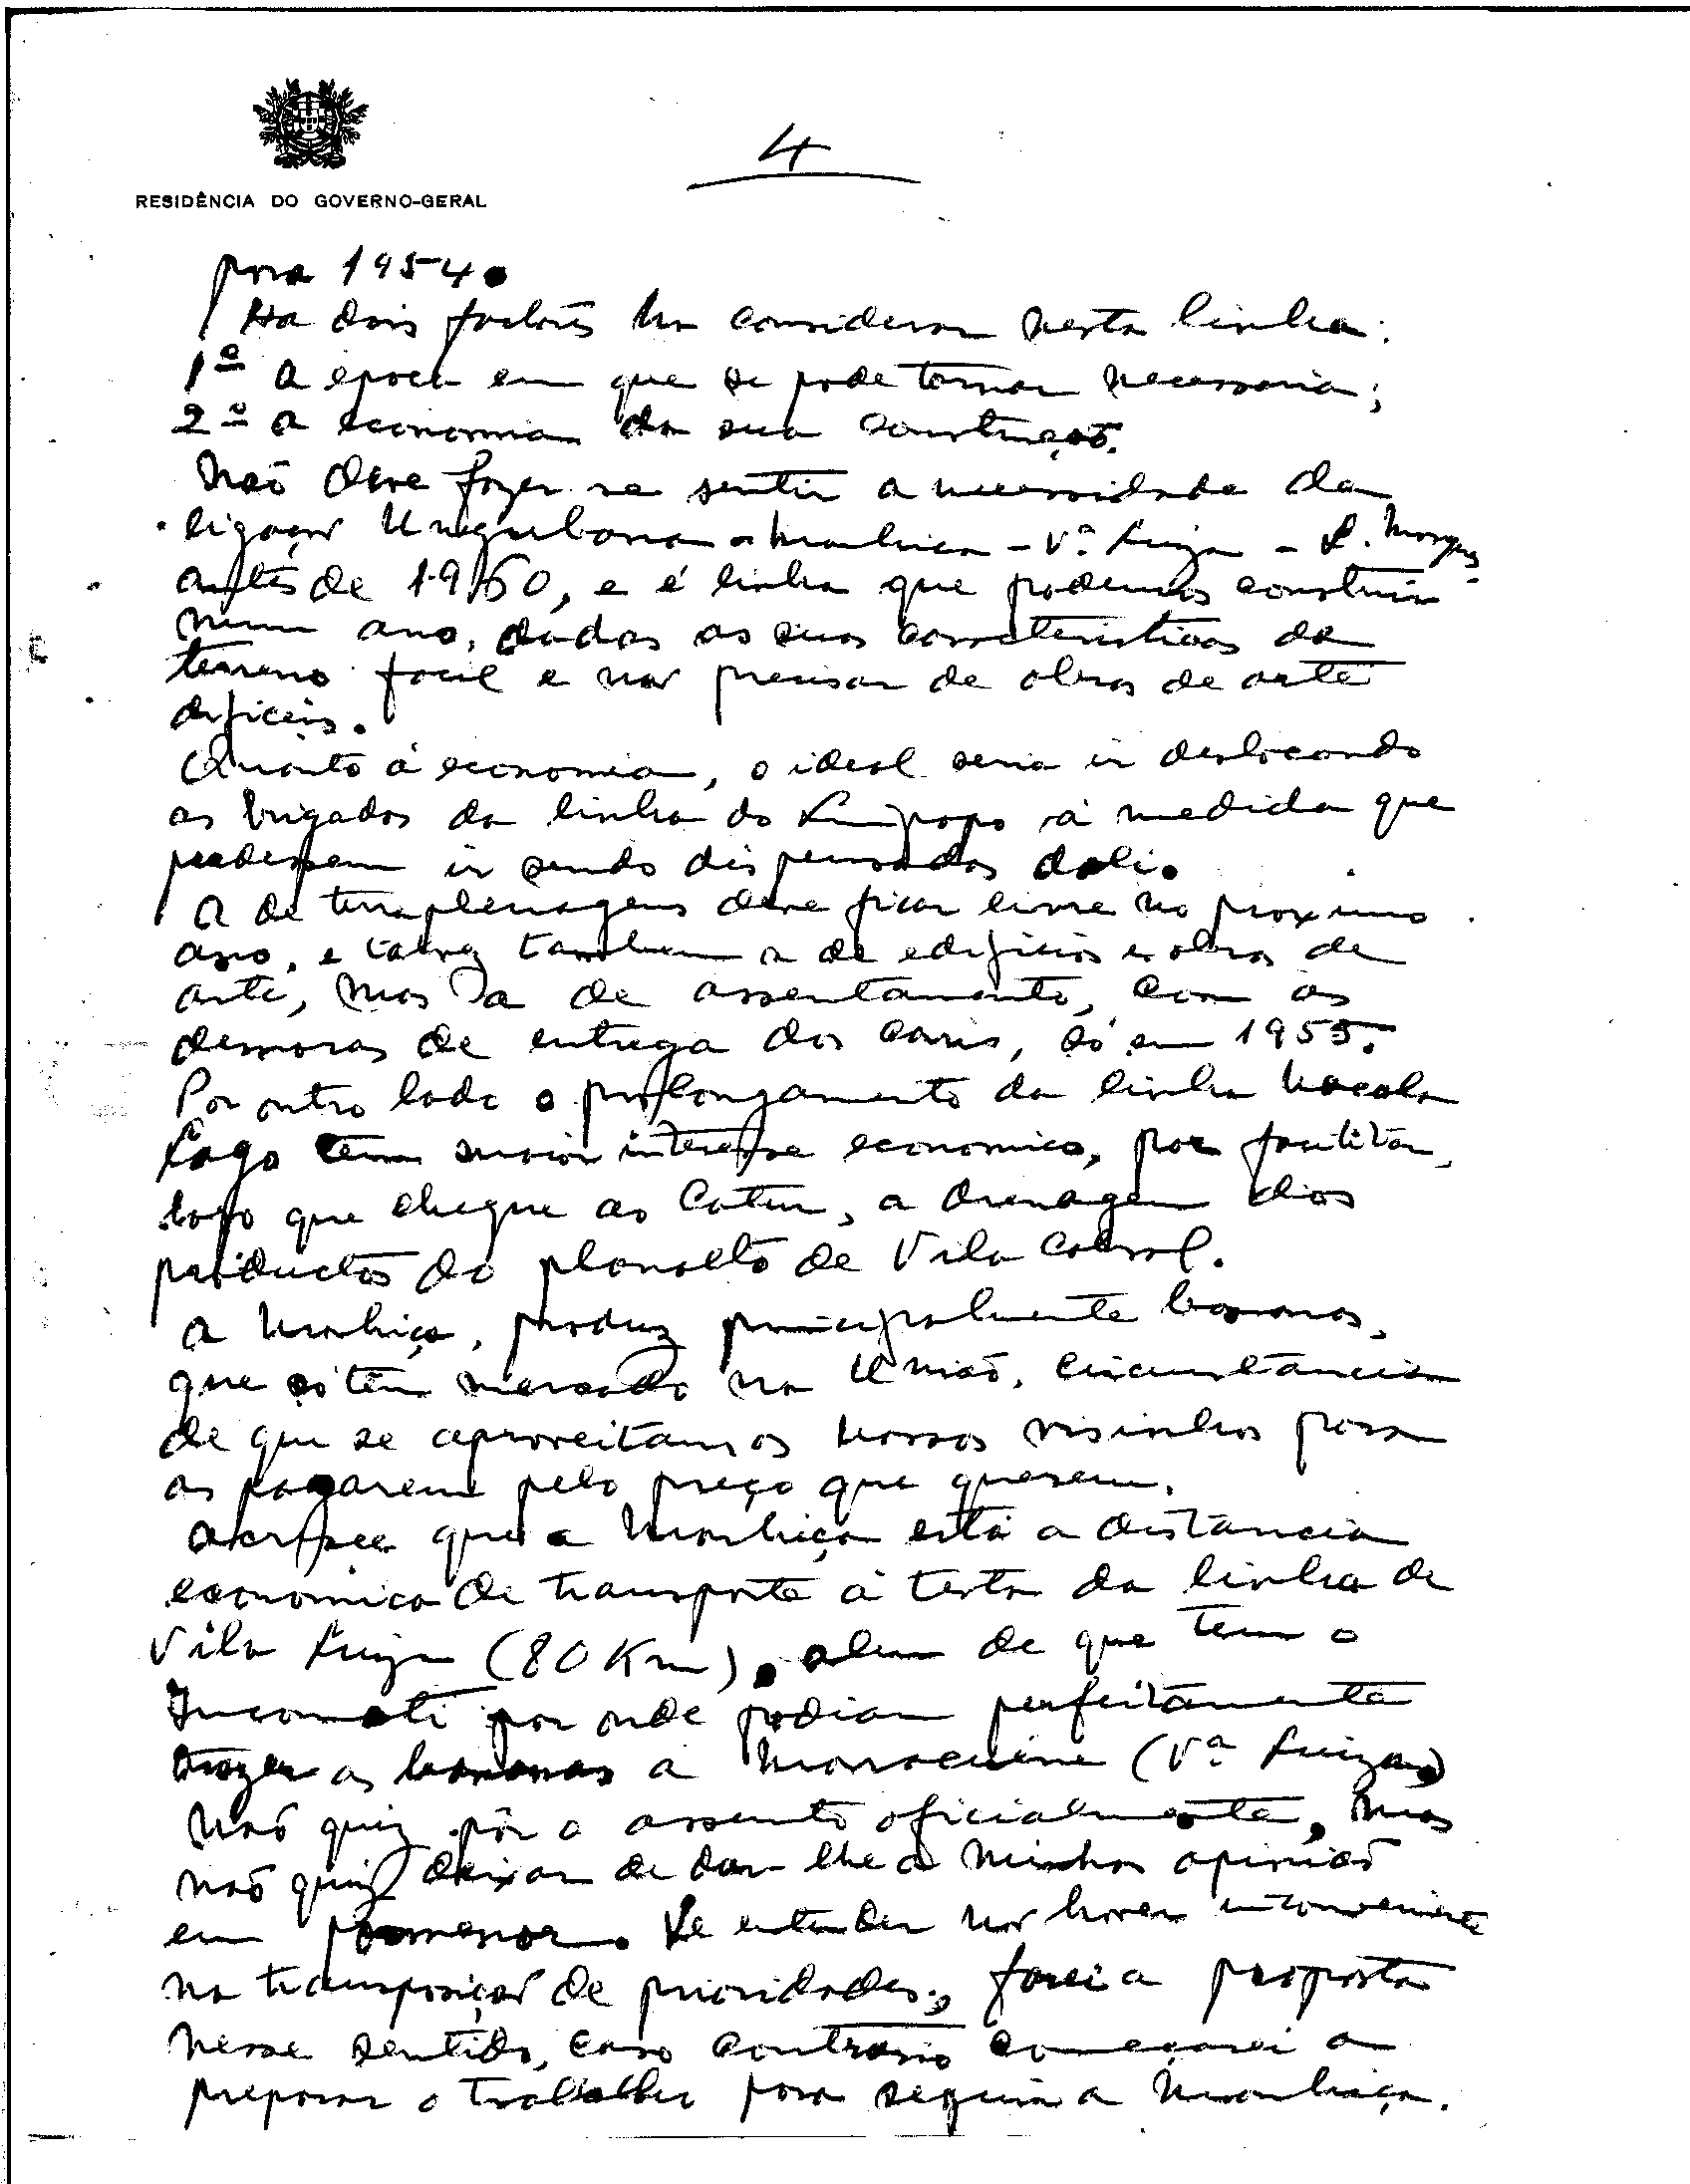 4
RESIDÊNCIA DO GOVERNO-GERAL
para 1954.
Ha dois factores a considerar nesta linha:
1º a epoca em que se pode tornar necessaria;
2º a economia da sua construção.
Não deve fazer-se sentir a necessidade da
ligação Ungubana - Manhiça - Vª Luiza - L. Marques
antes de 1960, e é linha que podemos construir
num ano, dadas as suas caracteristicas de
terreno facil e não precisar de obras de arte
dificeis.
Quanto á economia, o ideal seria ir deslocando
as brigadas da linha do Limpopo á medida que
pudessem ir sendo dispensadas dali.
A de terraplenagens deve ficar livre no proximo
ano, e talvez tambem a de edificios e obras de
arte, mas a de assentamento, com as
demoras de entrega dos carris, só em 1955.
Por outro lado o prolongamento da linha Nacala
Lago tem maior interesse economico, por facilitar,
logo que chegue ao Catur, a drenagem dos
productos do planalto de Vila Cabral.
A Manhiça, produz principalmente bananas,
que só têm mercado na União, circunstancia
de que se aproveitam os nossos visinhos para
as pagarem pelo preço que querem.
Acresce que a Manhiça está a distancia
economica de transporte á testa da linha de
Vila Luiza (80 Km), alem de que tem o
Incomati por onde podiam perfeitamente
trazer as bananas a Marracuene (Vª Luiza)
Não quiz pôr o assunto oficialmente, mas
não quiz deixar de dar-lhe a minha opinião
em pormenor. Se entender não haver inconveniente
na transposição de prioridades, farei a proposta
nesse sentido, caso contrario começarei a
preparar o trabalho para seguir a Manhiça.